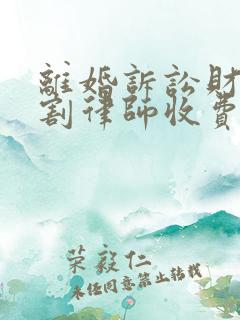 離婚訴訟財
割律師收費
荣毅仁
未经同意禁止转载